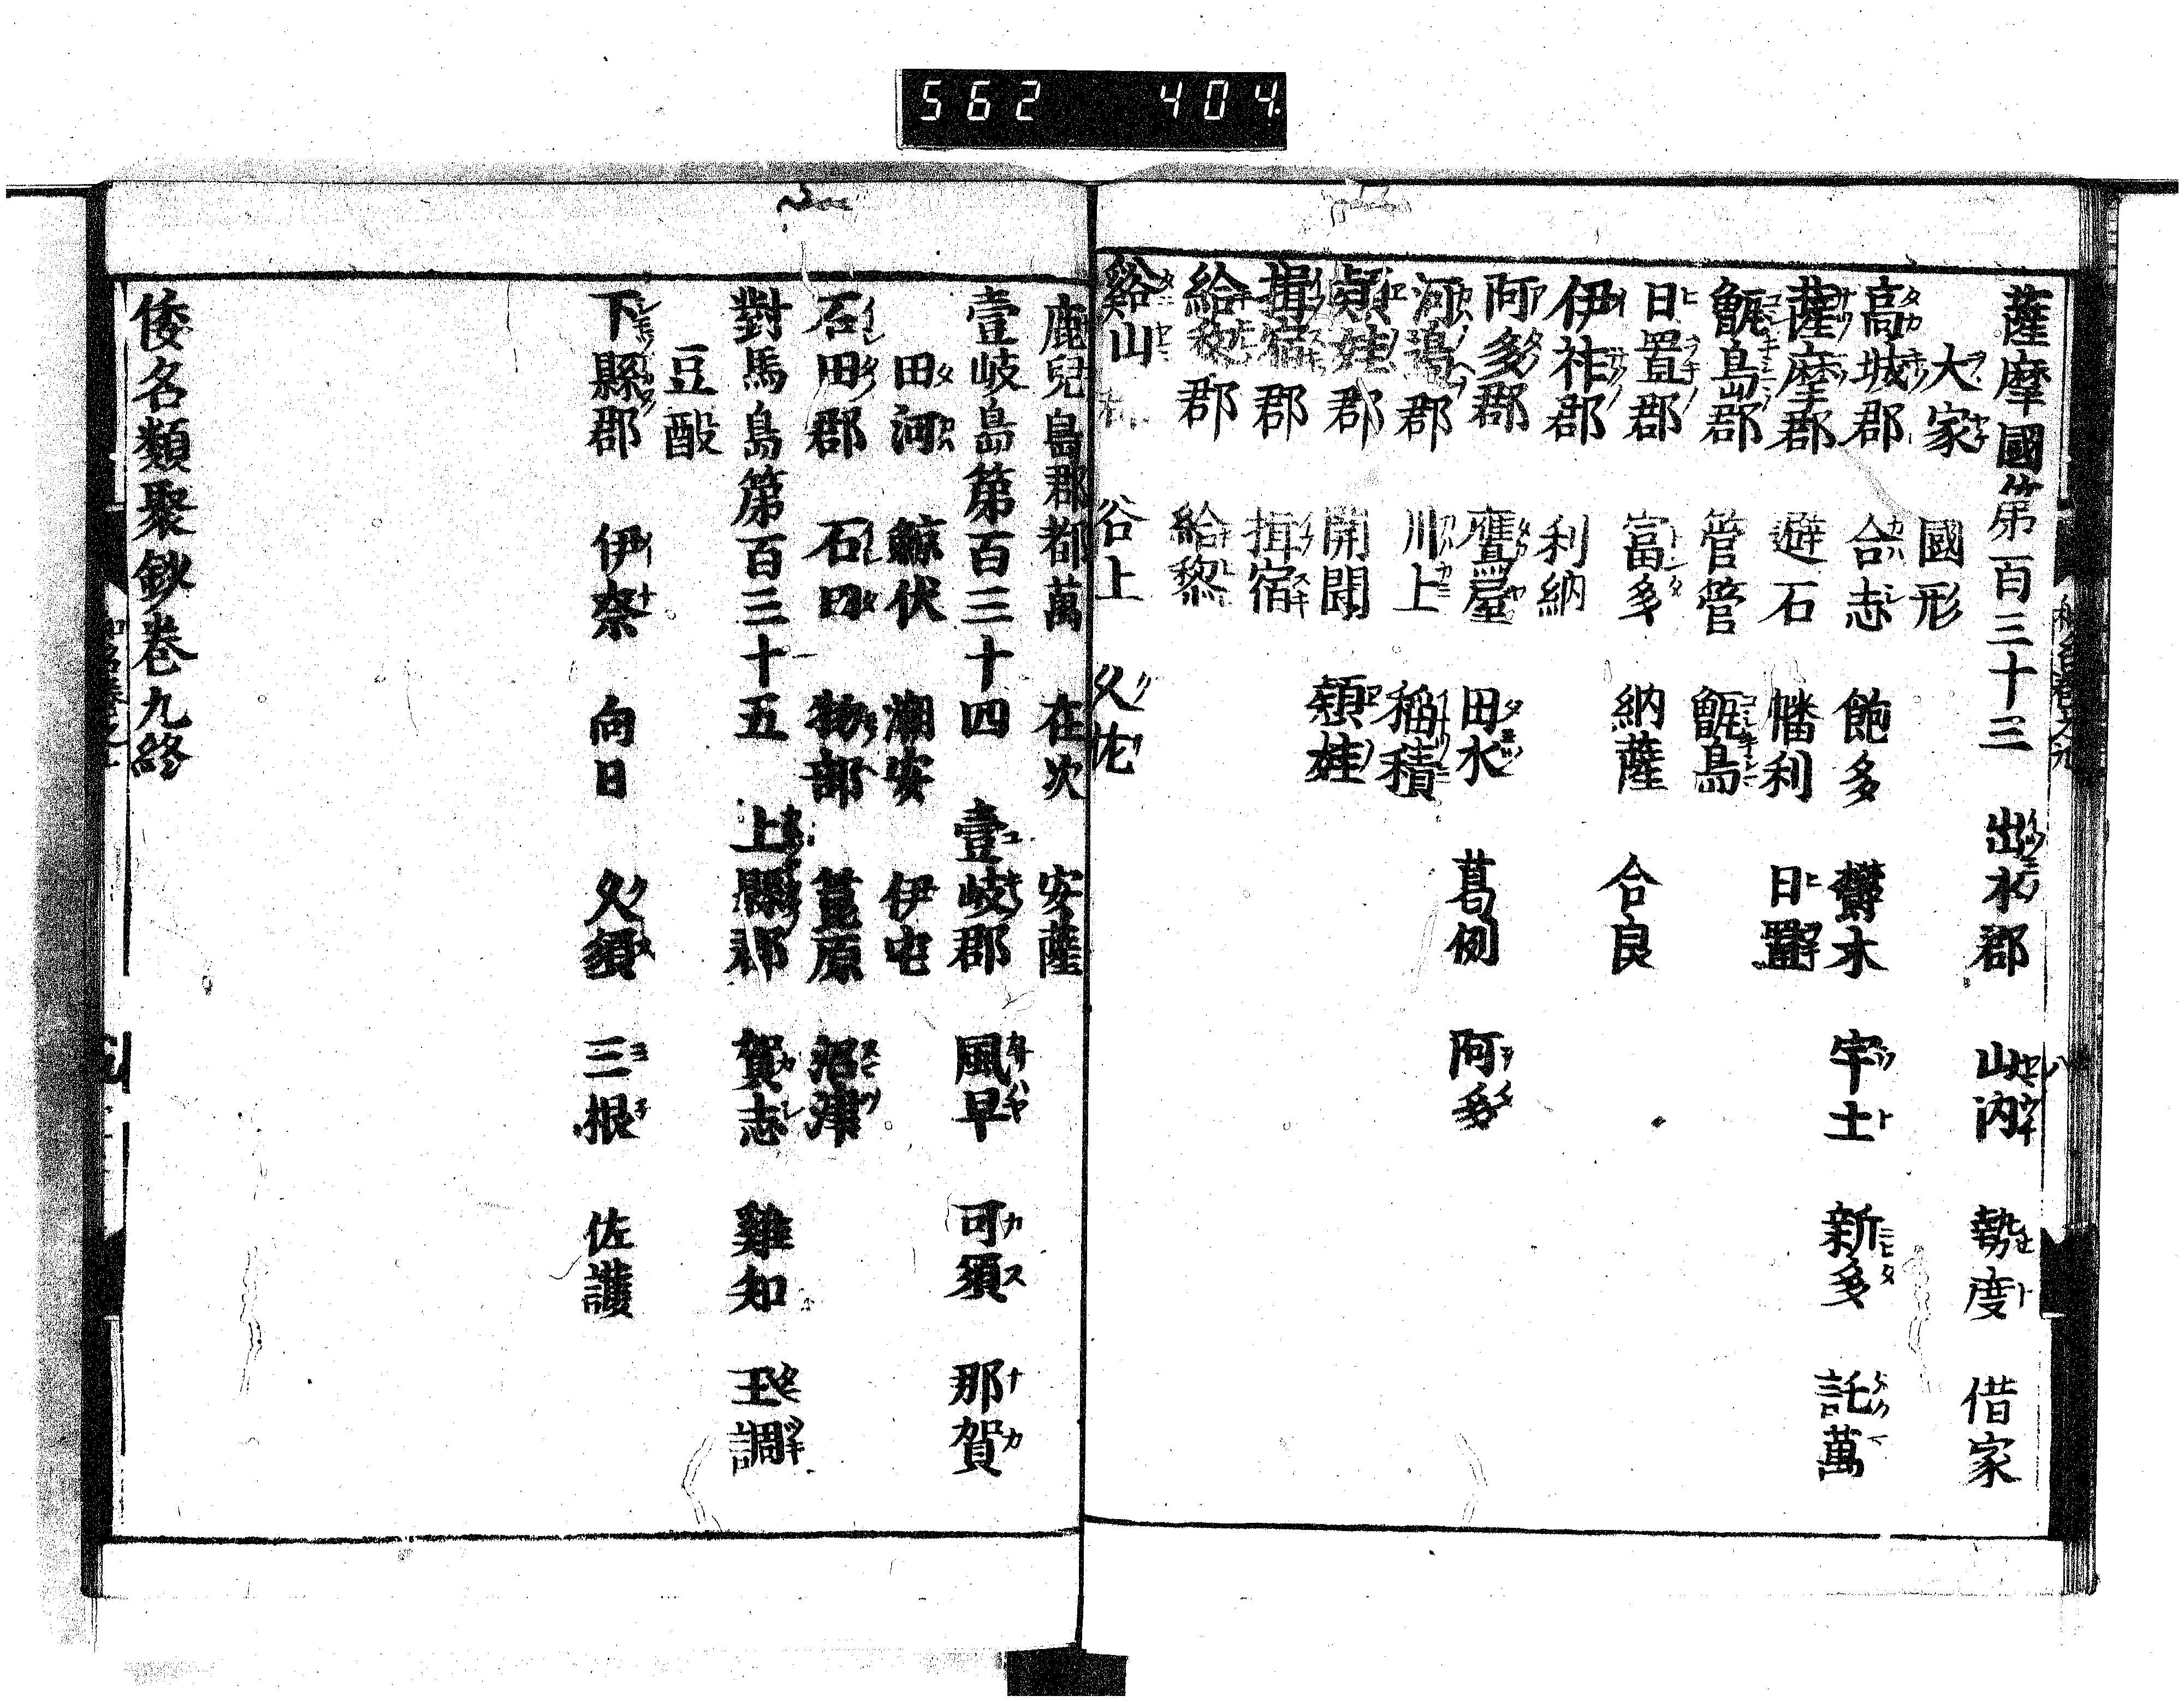 562 404
薩摩國第百三十三 出水郡 山內 勢度 借家
大家 國形
高城郡 合志 飽多 欝木 宇土 新多 託萬
薩摩郡 避石 幡利 日置
甑島郡 管管 甑島
日置郡 富多 納薩 合良
伊祚郡 利納
阿多郡 鷹屋 田水 葛例 阿多
河邊郡 川上 稲積
穎娃郡 開聞 穎娃
揖宿郡 揖宿
給黎郡 給黎
谿山 谷上 久佐
鹿兒島郡 都萬 在次 安薩
壹岐島第百三十四 壹岐郡 風早 可須 那賀
田河 鯨伏 潮安 伊宅
石田郡 石田 物部 萓原 沼津
對馬島第百三十五 上縣郡 賀志 雞知 玉調
豆酘
下縣郡 伊奈 向日 久須 三根 佐護
倭名類聚鈔卷九終